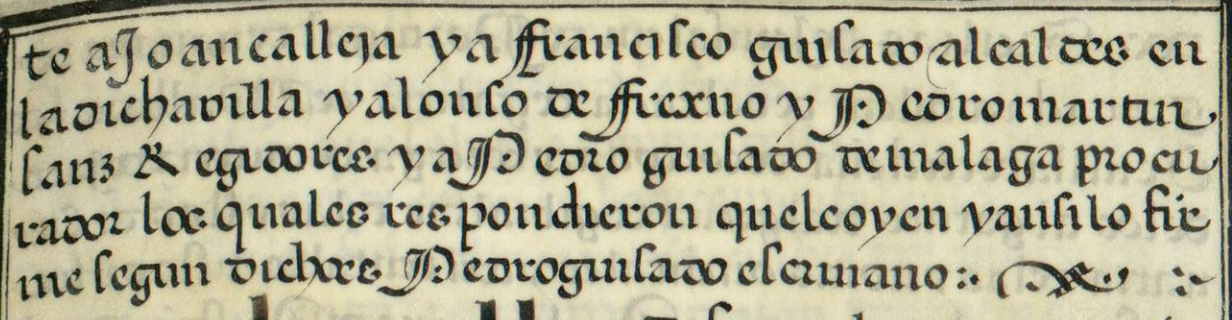 te a Joan calleja y a ffrancisco guisado alcaldes en
la dicha villa y alonso de ffrexno y Pedro martin
sanz Regidores y a Pedro guisado de malaga procu
rador los quales respondieron que le oyen y ansi lo fir
me segun dicho es Pedro guisado escrivano